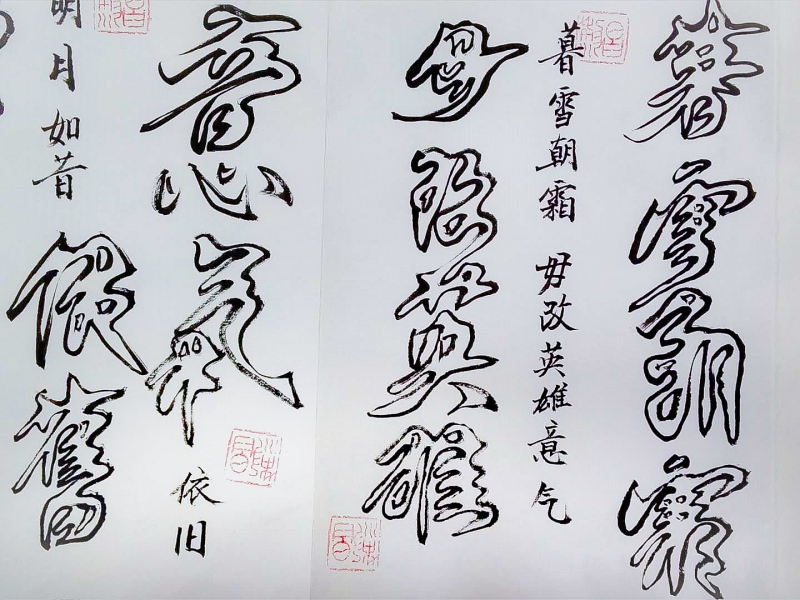 暮雪朝霜
暮雪朝霜 毋改英雄意气
毋改英雄
意氣 依旧
明月如昔 依舊